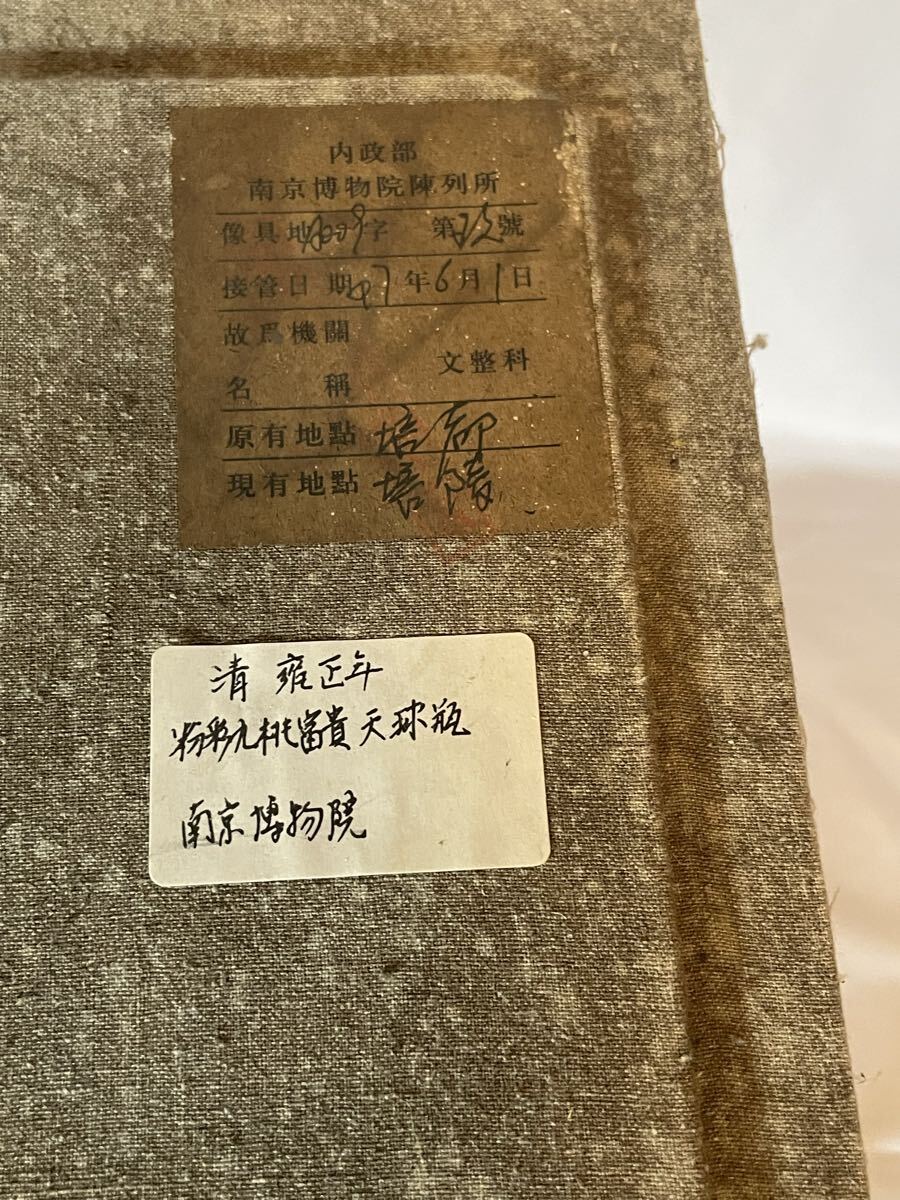 内政部
南京博物院陳列所
像具地 字 第 號
接管日期 7年6月1日
故為機關
文整科
名稱
原有地點
現有地點
清 雍正年
粉彩九桃富貴天球瓶
南京博物院